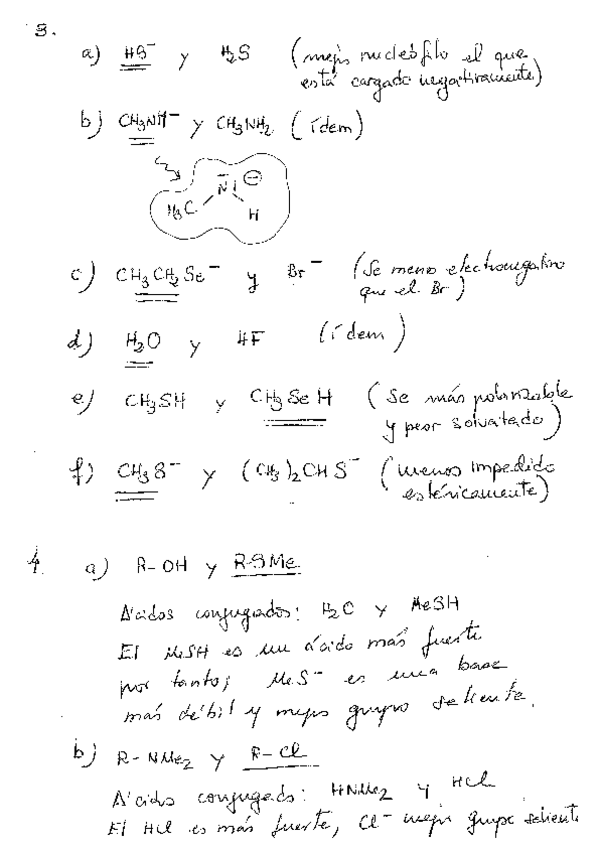 3.
a) HS⁻ y H₂S (mejor nucleófilo el que
está cargado negativamente)
b) CH₃NH⁻ y CH₃NH₂ (ídem)
H₃C N H ⊖
c) CH₃CH₂Se⁻ y Br⁻ (Se menos electronegativo
que el Br)
d) H₂O y HF (ídem)
e) CH₃SH y CH₃SeH (Se más polarizable
y peor solvatado)
f) CH₃S⁻ y (CH₃)₂CHS⁻ (menos impedido
estéricamente)
4. a) R-OH y R-SMe
Ácidos conjugados: H₂O y MeSH
El MeSH es un ácido más fuerte
por tanto; MeS⁻ es una base
más débil y mejor grupo saliente.
b) R-NMe₂ y R-Cl
Ácidos conjugados: HNMe₂ y HCl
El HCl es más fuerte, Cl⁻ mejor grupo saliente